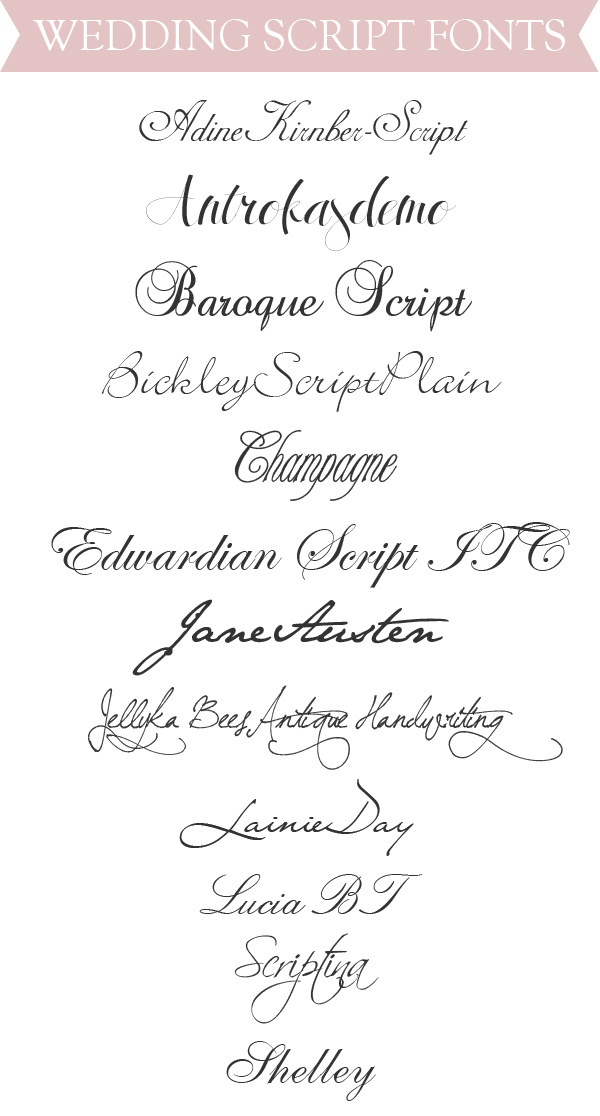 WEDDING SCRIPT FONTS
AdineKirnber-Script
Antrokasdemo
Baroque Script
BickleyScriptPlain
Champagne
Edwardian Script ITC
JaneAusten
Jellyka Bees Antique Handwriting
LainieDay
Lucia BT
Scriptina
Shelley